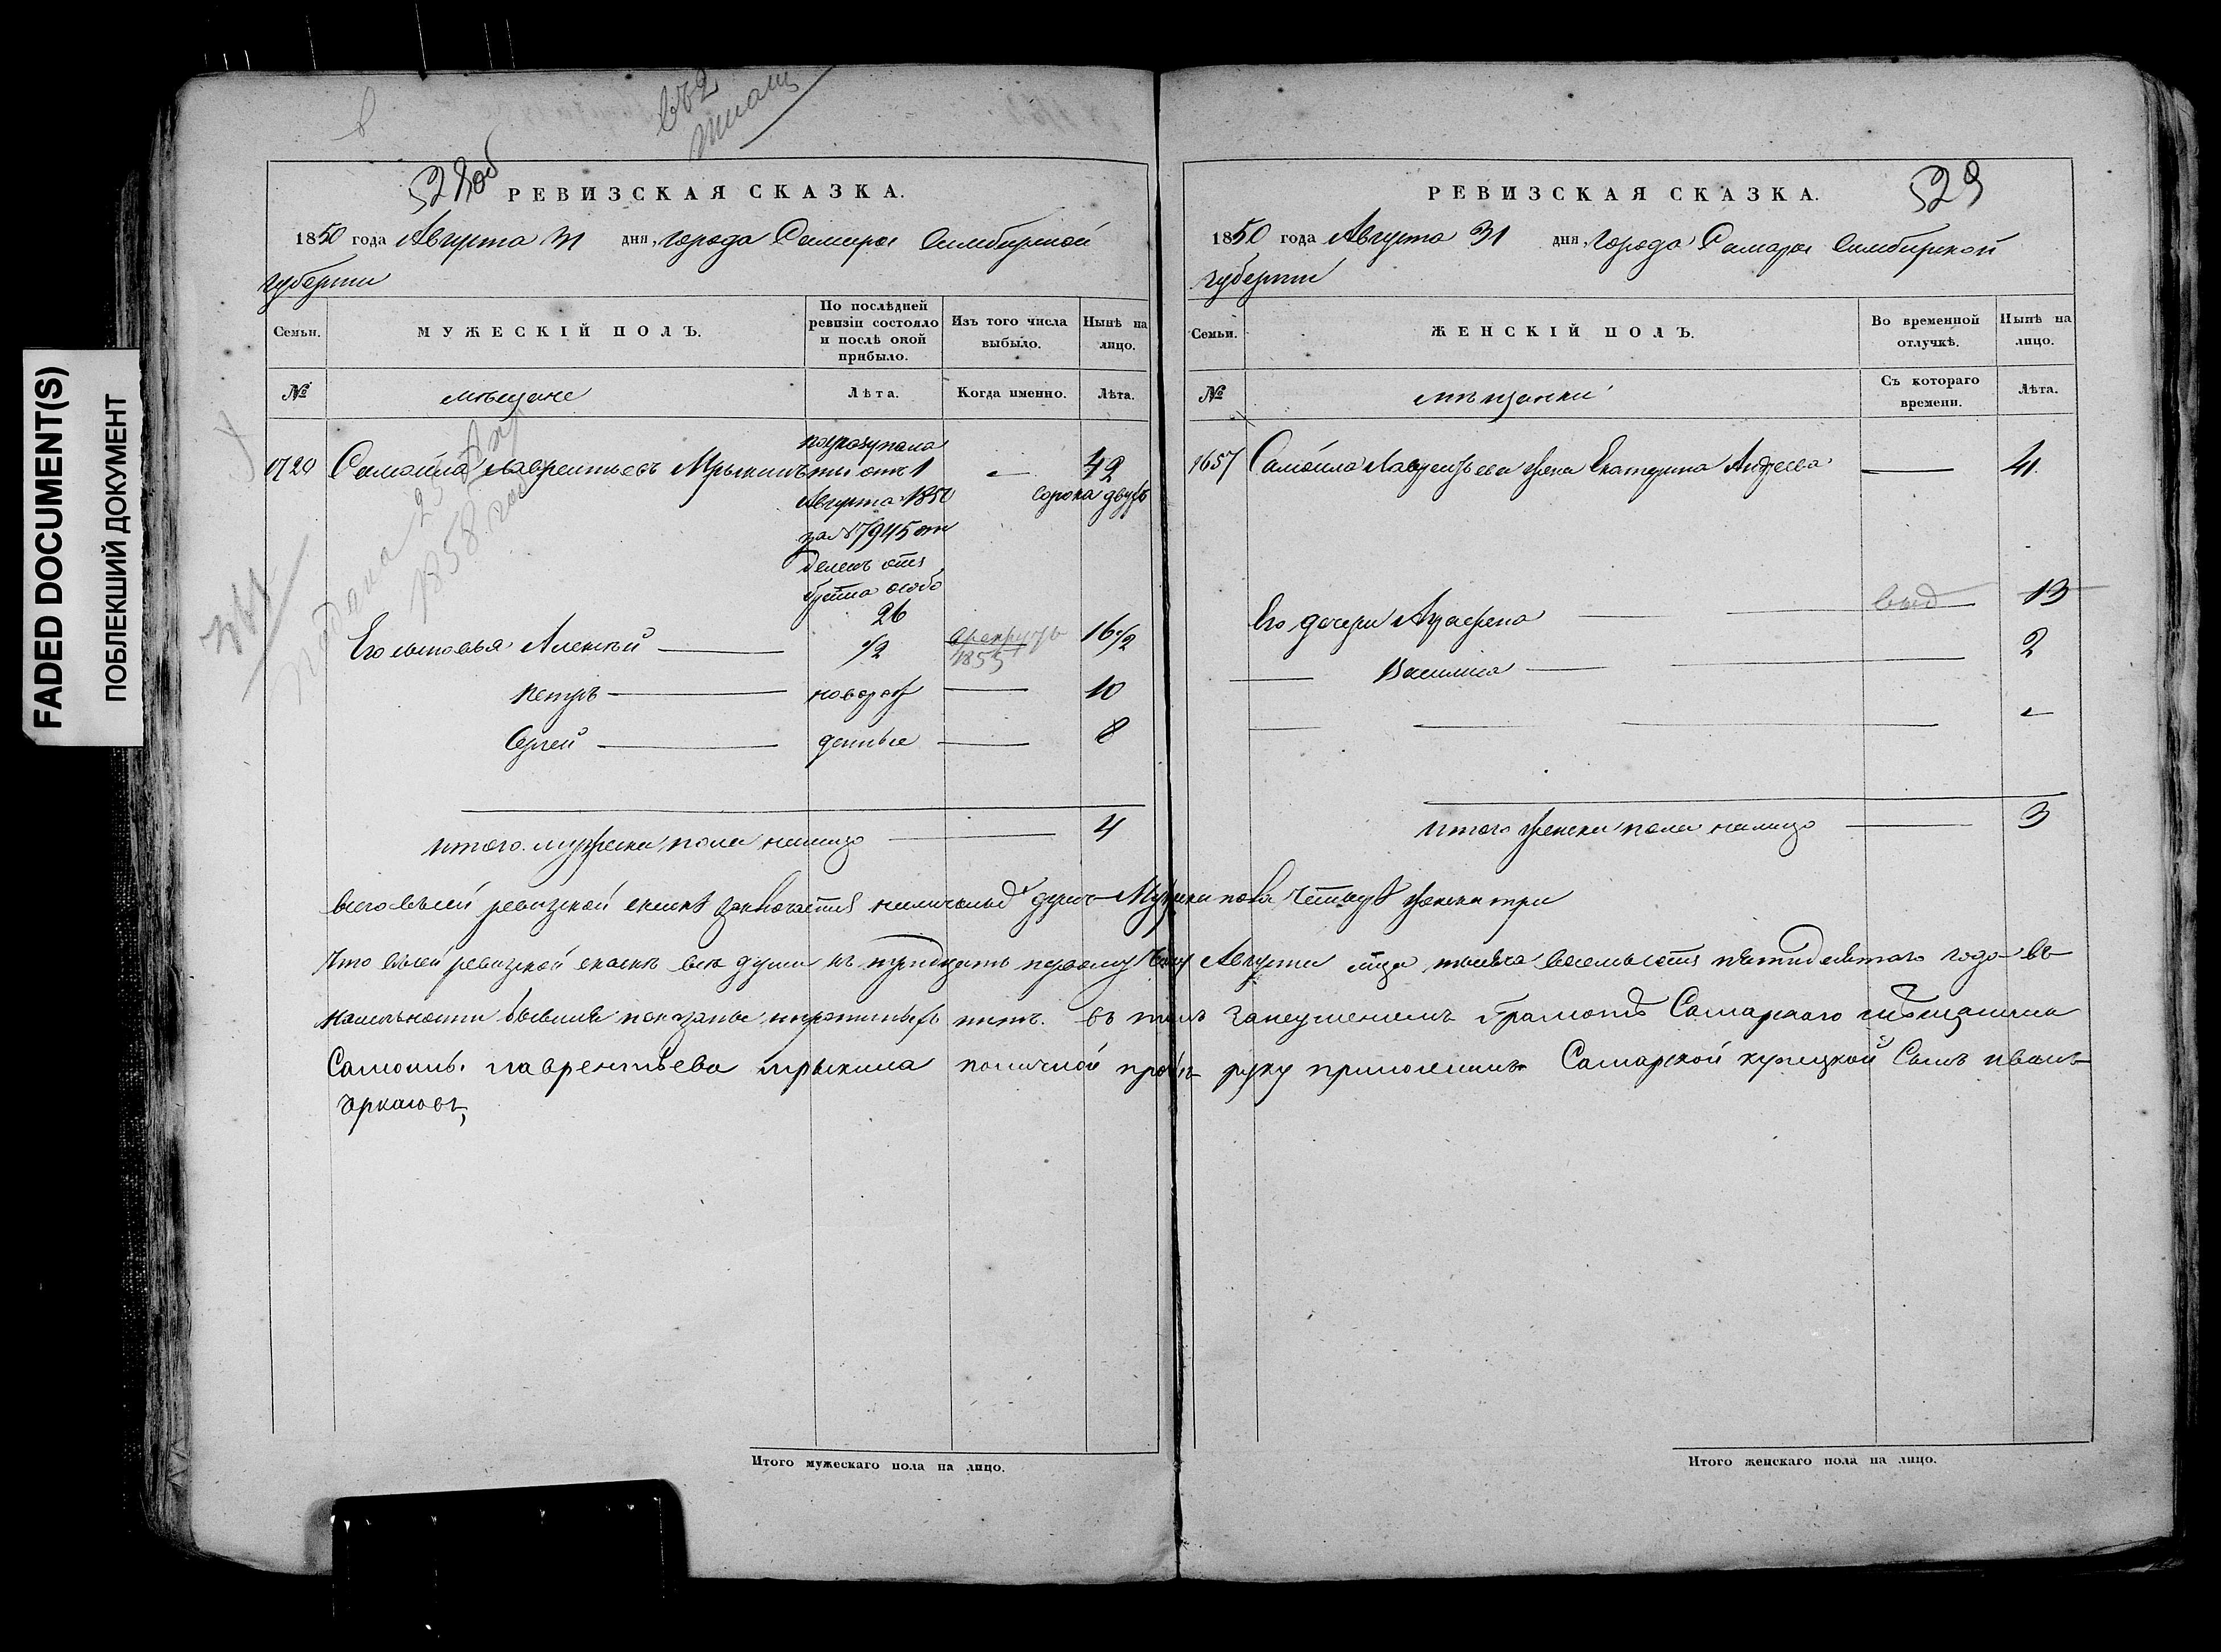 FADED DOCUMENT(S)
ПОБЛЕКШИЙ ДОКУМЕНТ
528об
РЕВИЗСКАЯ СКАЗКА.
1850 года Августа 31 дня, города Самары Симбирской
губернии
Семьи.
МУЖЕСКІЙ ПОЛЪ.
По послѣдней
ревизіи состояло
и послѣ оной
прибыло.
Изъ того числа
выбыло.
Нынѣ на
лицо.
№
мѣщане
Лѣта.
Когда именно.
Лѣта.
подана
1858 года
1720 Самойла Лаврентьевъ Мрыкинъ
от 1
Августа 1850
за № 7945 от
деленъ отъ
особо
26
42
сорока двухъ
Его сыновья Алексѣй 1/2 1855 16 1/2
Петръ новорож 10
Сергей денные 8
итого мужеска пола налицо 4
529
РЕВИЗСКАЯ СКАЗКА.
1850 года Августа 31 дня, города Самары Симбирской
губернии
Семьи.
ЖЕНСКІЙ ПОЛЪ.
Во временной
отлучкѣ.
Нынѣ на
лицо.
№
мѣщанки
Съ котораго
времени.
Лѣта.
1657 Самойла Лаврентьева жена Екатерина Андреева 41
Его дочери Аграфена выд 13
Василиса 2
итого женска пола налицо 3
всего въ сей ревизской сказкѣ заключается наличныхъ душъ Мужска пола четыре женска три
Что въ сей ревизской сказкѣ все души къ тридцать первому числу Августа м-ца тысяча восемьсотъ пятидесятого года въ
наличности бывшия показаны и прописныхъ нетъ. въ томъ за неумениемъ грамотѣ Самарского мѣщанина
Самойлы Лаврентьева Мрыкина по личной прозьбѣ руку приложилъ Самарской купецкой Сынъ Иванъ
Итого мужескаго пола на лицо.
Итого женскаго пола на лицо.